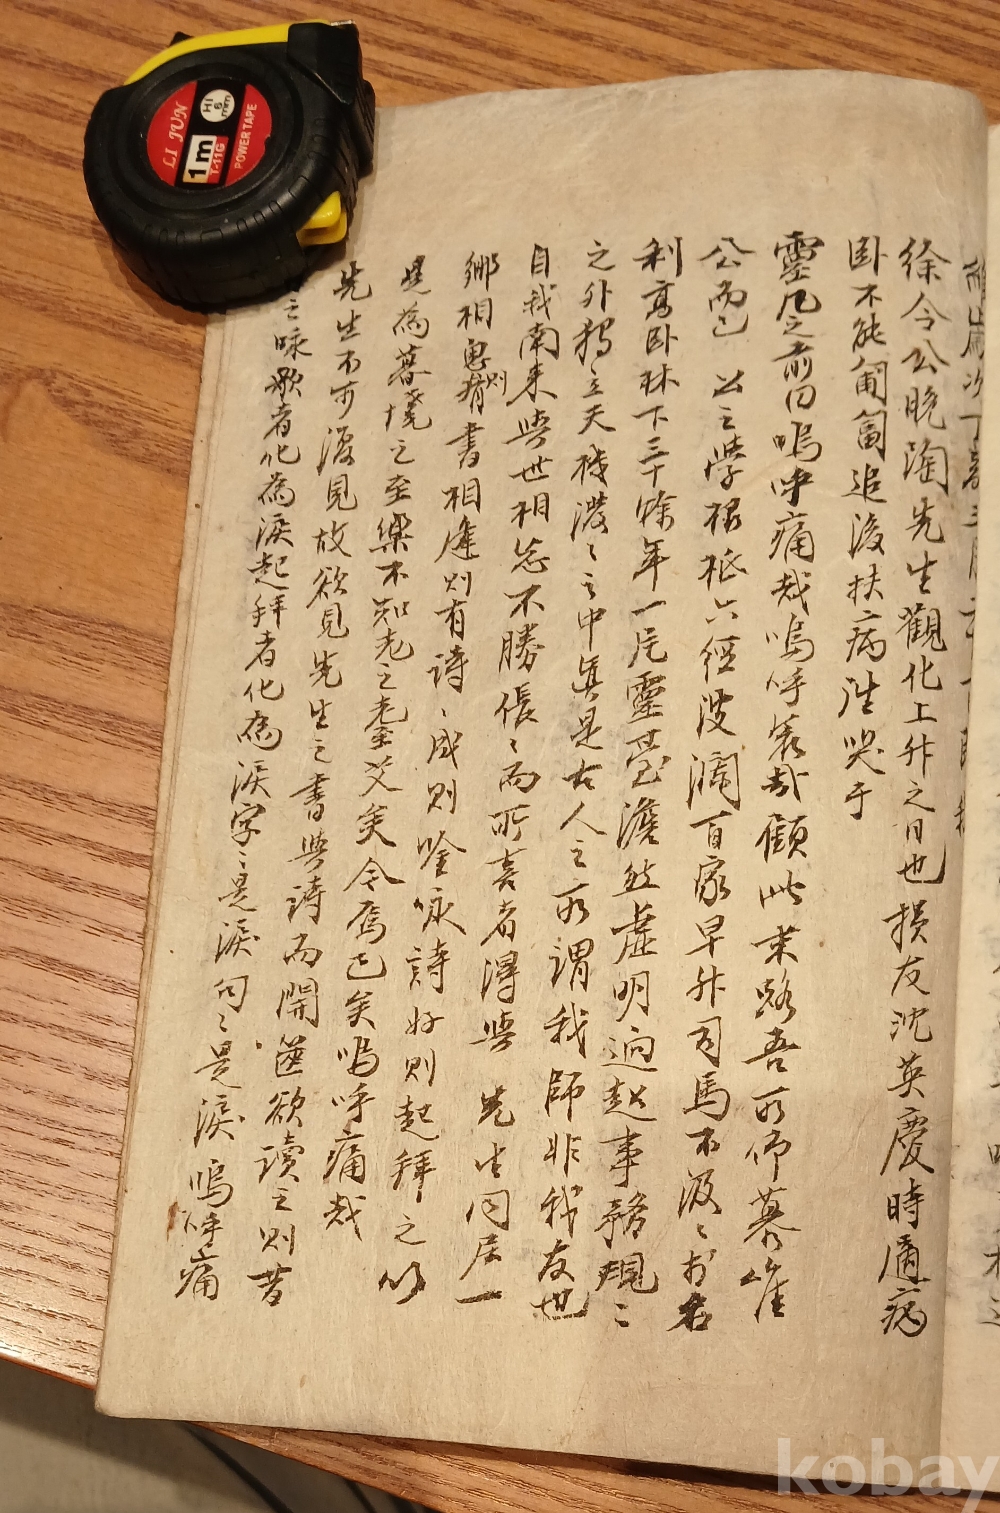 維歲次丁
徐令公晚陶先生觀化上升之日也損友沈英慶時適病
卧不能匍匐追後扶病淮哭于
靈几之前曰嗚呼痛哉嗚呼哀哉顧此末路吾所仰慕唯
公而已 公之學根柢六經波瀾百家早升司馬不汲〻於名
利高卧林下三十餘年一片靈臺澹然虛明逈超事務規〻
之外獨立天機潑〻之中眞是古人之所謂我師非我友也
自我南来與世相忘不勝倀〻而所喜者得與 先生同居一
鄉相思則有書相逢則有詩〻成則唫咏詩好則起拜之以
是為暮境之至樂不知老之耋艾矣今焉已矣嗚呼痛哉
先生不可復見故欲見先生之書與詩而開篋欲讀之則昔
之咏歌者化為淚起拜者化為淚字〻是淚句〻是淚嗚呼痛
LI JUN
HI
6
mm
1m
T-11G
POWER TAPE
kobay